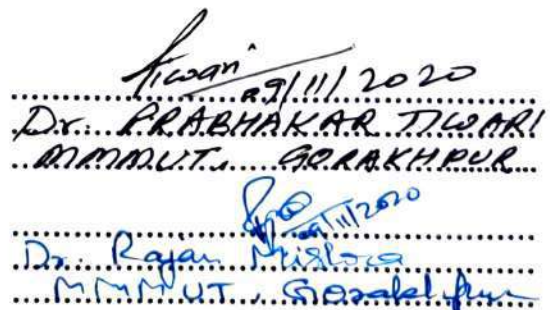 Tiwari
29/11/2020
Dr. PRABHAKAR TIWARI
MMMUT, GORAKHPUR
/11/2020
Dr. Rajan Mishra
MMMUT, Gorakhpur